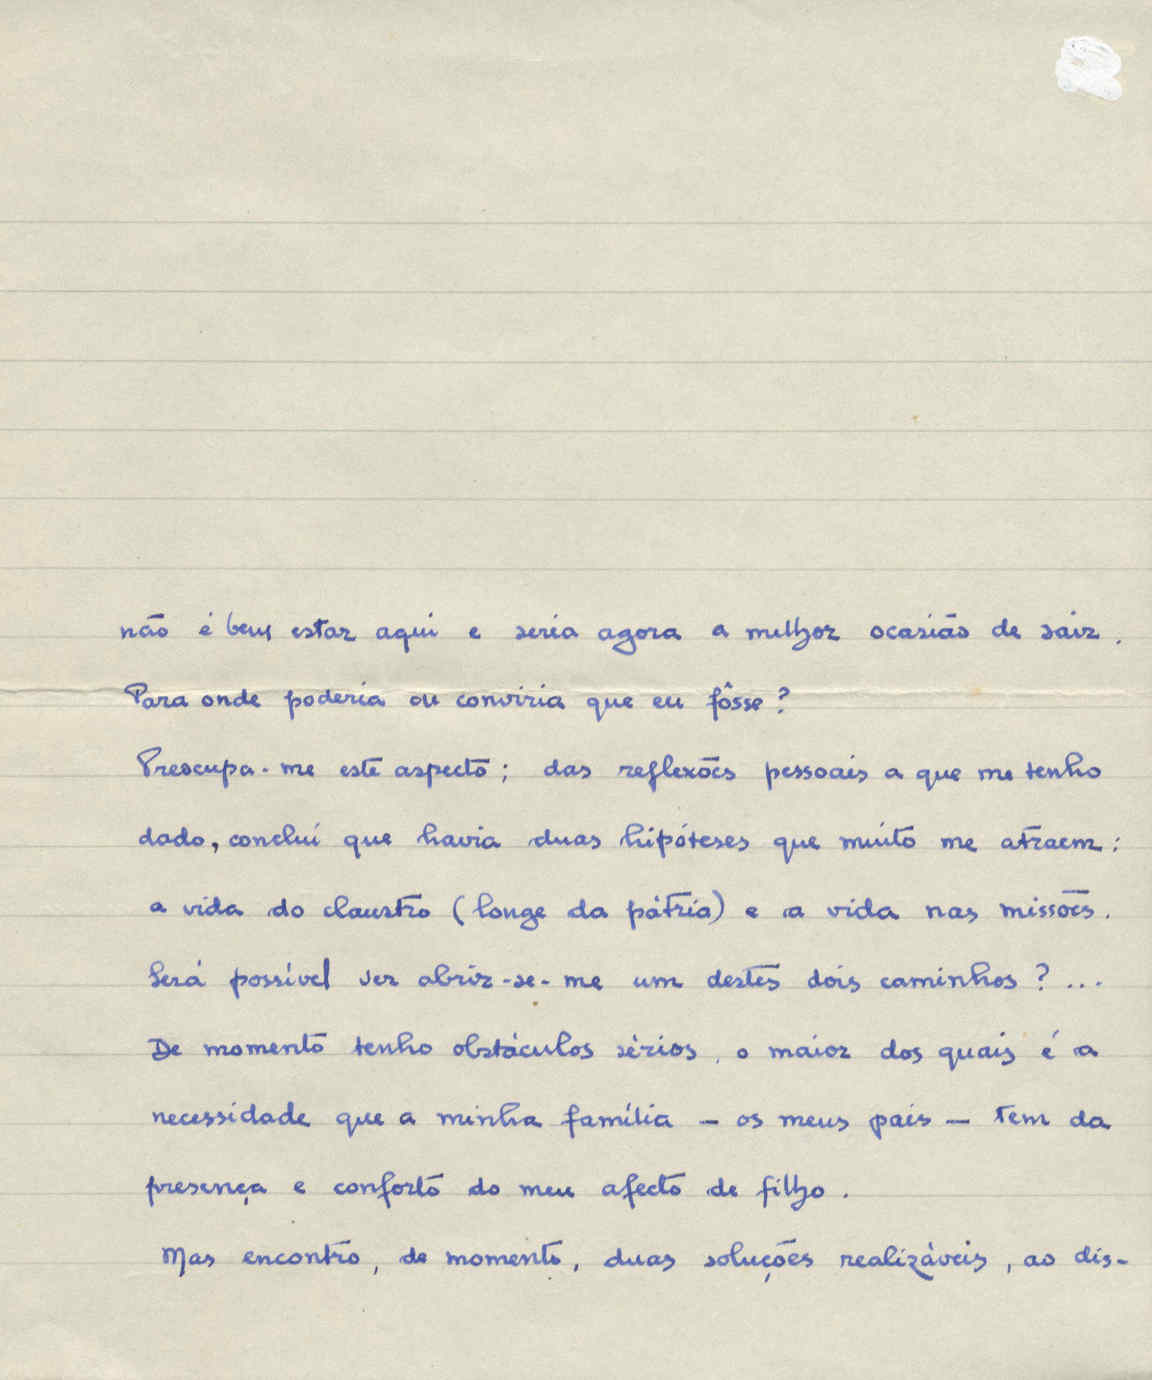 não é bem estar aqui e seria agora a melhor ocasião de sair.
Para onde poderia ou conviria que eu fôsse?
Preocupa-me este aspecto; das reflexões pessoais a que me tenho
dado, concluí que havia duas hipóteses que muito me atraem:
a vida do claustro (longe da pátria) e a vida nas missões.
Será possível ver abrir-se-me um destes dois caminhos?...
De momento tenho obstáculos sérios, o maior dos quais é a
necessidade que a minha família - os meus pais - tem da
presença e conforto do meu afecto de filho.
Mas encontro, de momento, duas soluções realizáveis, ao dis-